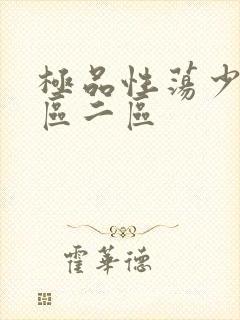 極品性蕩少
區二區
霍華德